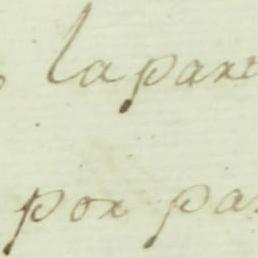 lapare
por pa